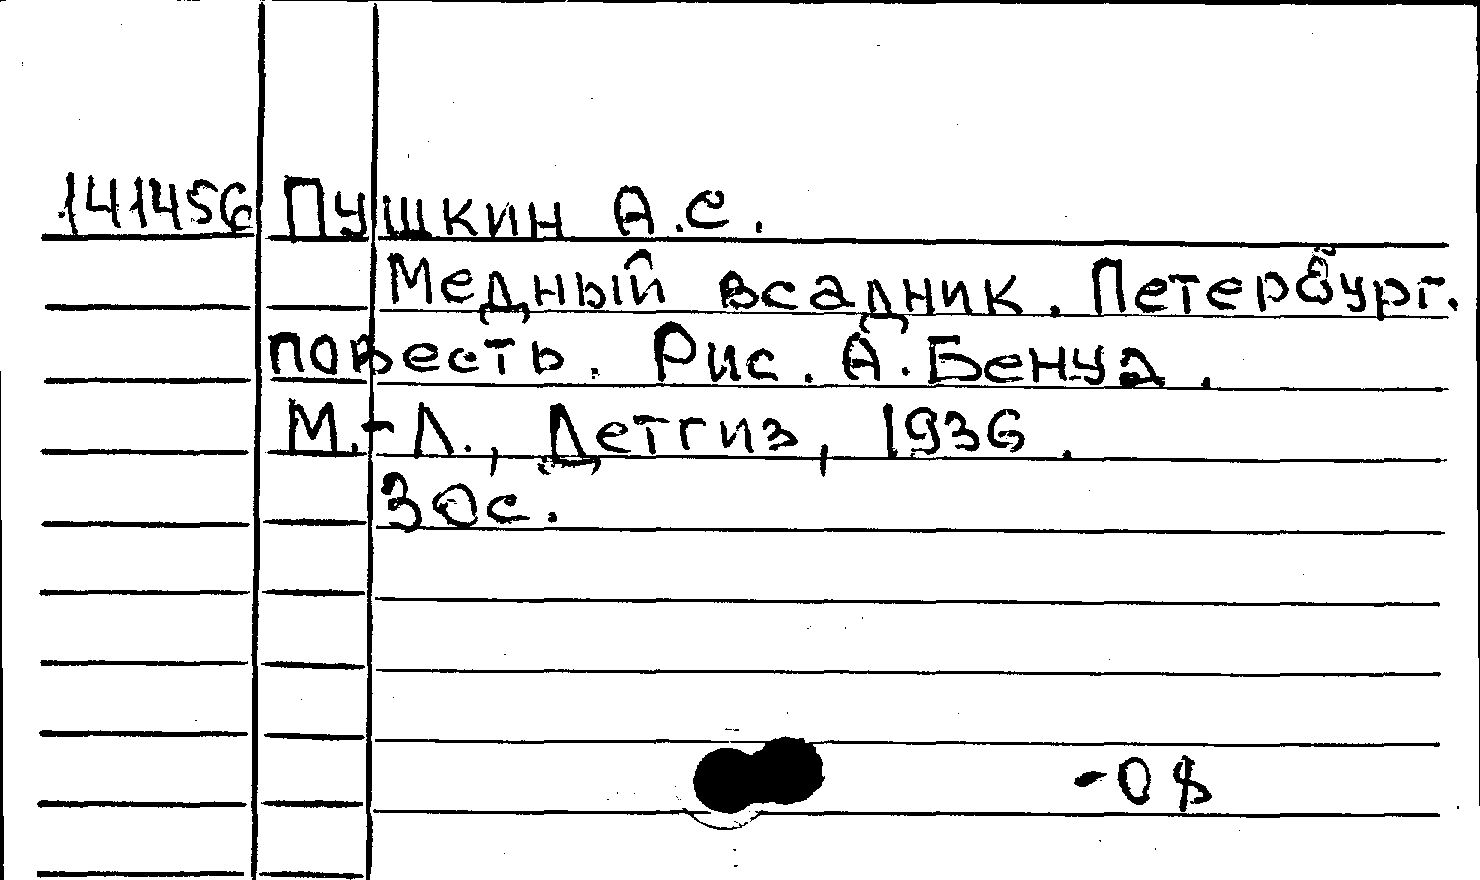 141456 Пушкин А.С.
Медный всадник. Петербург.
повесть. Рис. А. Бенуа.
М.-Л., Детгиз, 1936.
30с.